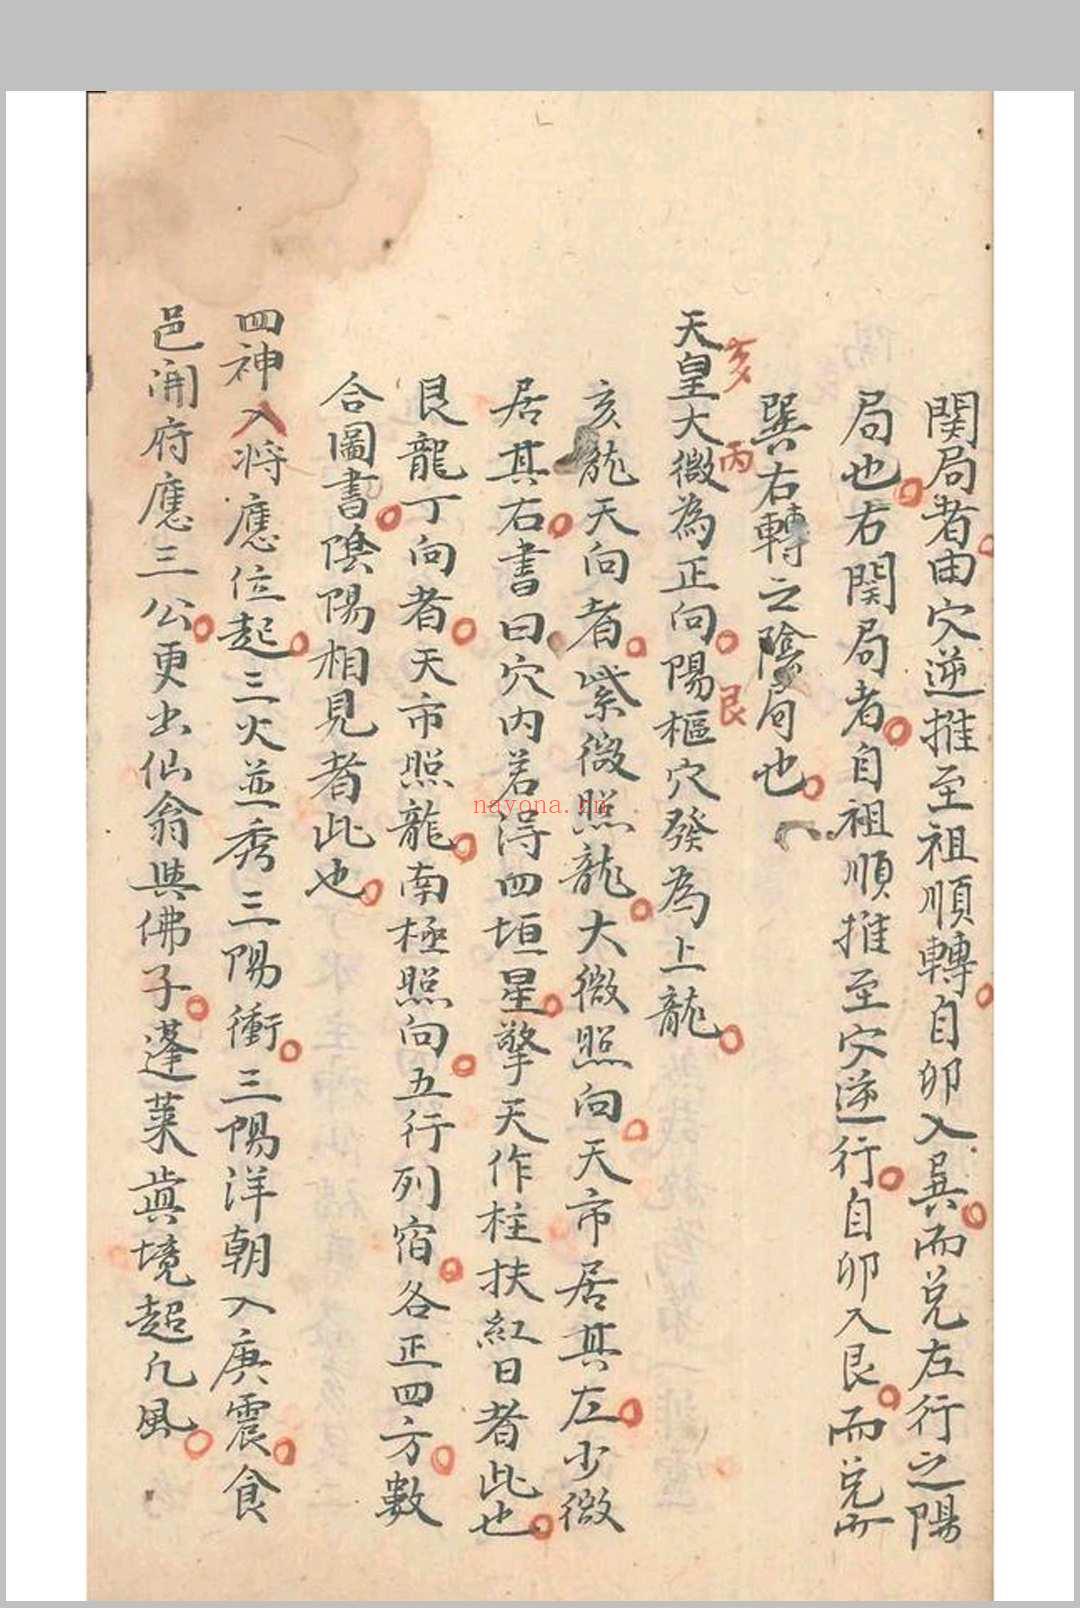 関局者由穴逆推至祖順轉自卯入巽而兌左行之陽
局也右関局者自祖順推至穴逆行自卯入艮而兌
巽右轉之陰局也
天皇大微為正向陽樞穴發為上龍
亥
丙
艮
亥龍天向者紫微照龍大微照向天市居其左少微
居其右書曰穴内若得四垣星擎天作柱扶紅日者此也
艮龍丁向者天市照龍南極照向五行列宿各正四方數
合圖書陰陽相見者此也
四神入将應位起三火並秀三陽衝三陽洋朝入庚震食
邑開府應三公更出仙翁與佛子蓬萊真境超凡風
nayona.cn